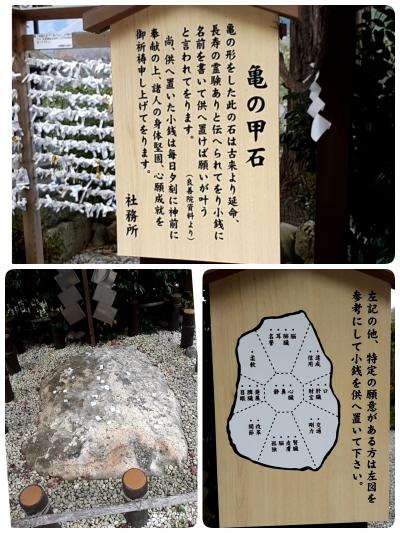 亀の甲石
亀の形をした此の石は古来より延命、
長寿の霊験ありと伝へられてをり小銭に
名前を書いて供へ置けば願いが叶う
と言われてをります。
(良善院資料より)
尚、供へ置いた小銭は毎日夕刻に神前に
奉献の上、諸人の身体堅固、心願成就を
御祈祷申し上げてをります。
社務所
左記の他、特定の願意がある方は左図を
参考にして小銭を供へ置いて下さい。
達成
信用
交通
剛力
腎臓
皮膚
孤独
改革
関節
柔軟
名誉
心臓